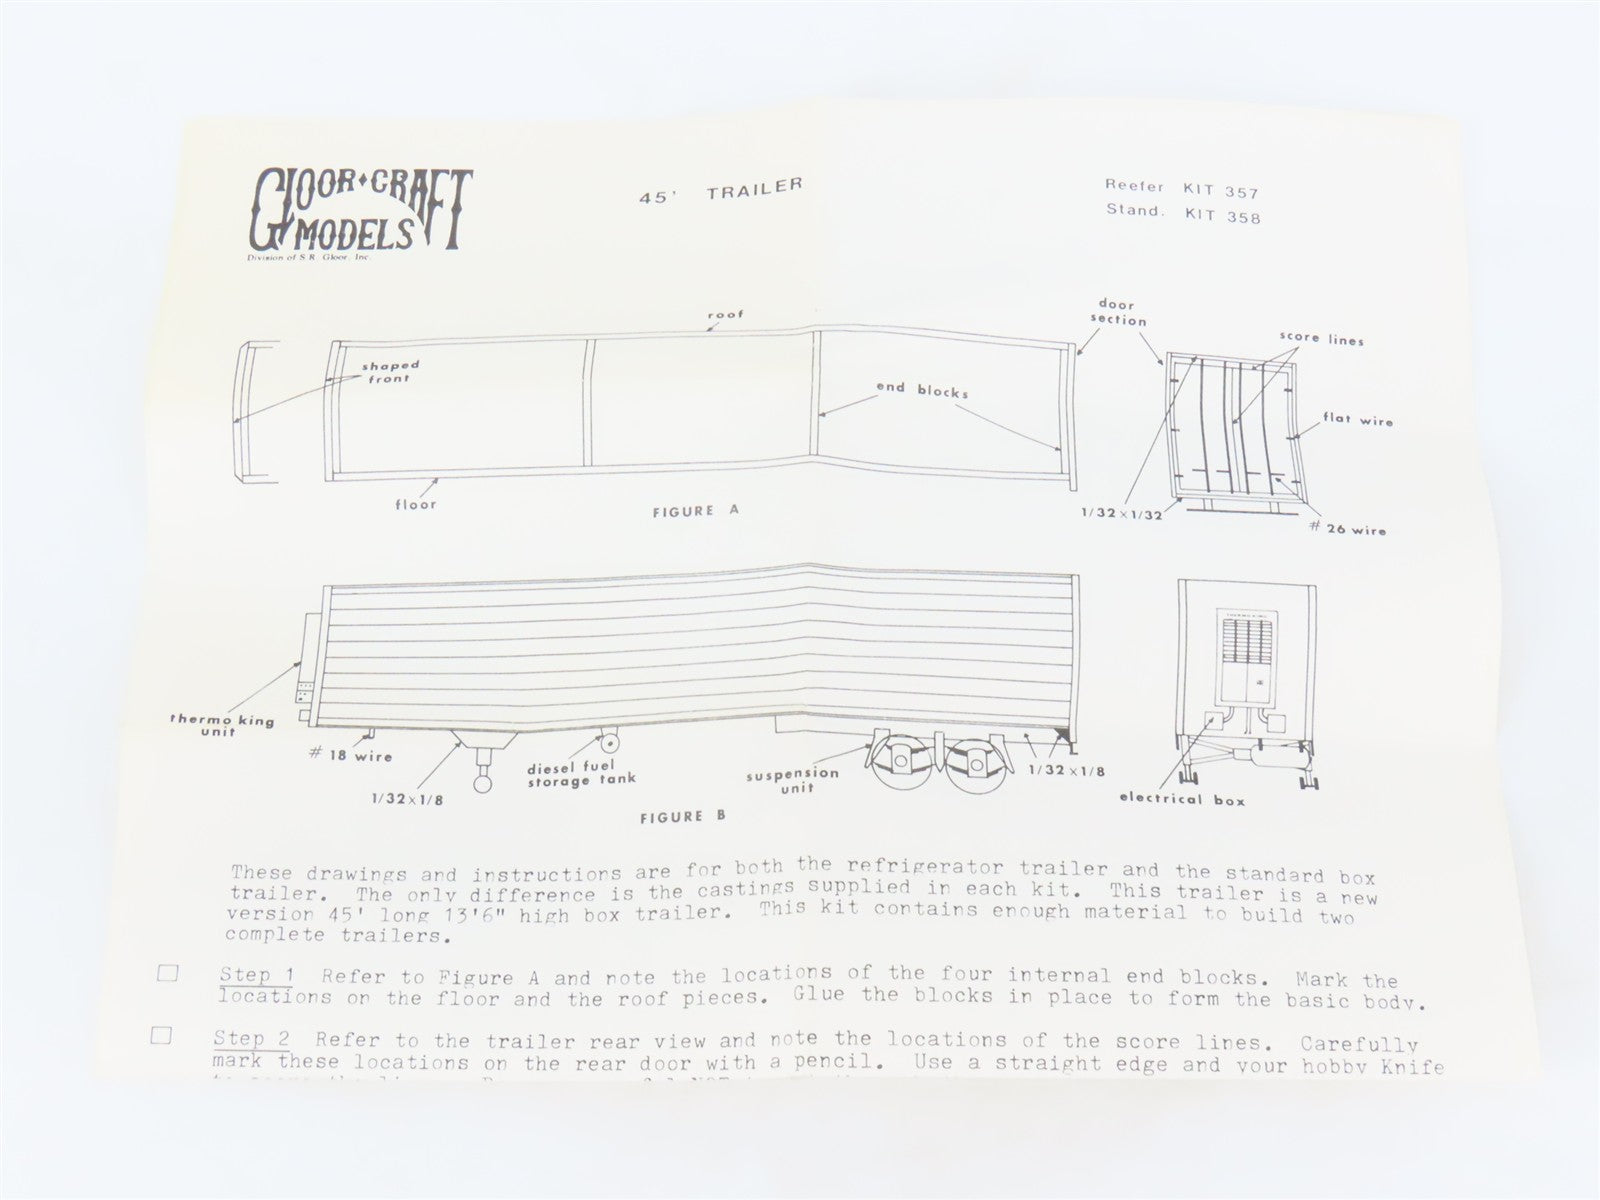 GLOOR·CRAFT
MODELS
Division of S.R. Gloor, Inc.
45' TRAILER
Reefer KIT 357
Stand. KIT 358
roof
door
section
score lines
shaped
front
end blocks
flat wire
floor
FIGURE A
1/32x1/32
# 26 wire
thermo king
unit
# 18 wire
1/32x1/8
diesel fuel
storage tank
suspension
unit
1/32x1/8
electrical box
FIGURE B
These drawings and instructions are for both the refrigerator trailer and the standard box
trailer. The only difference is the castings supplied in each kit. This trailer is a new
version 45' long 13'6" high box trailer. This kit contains enough material to build two
complete trailers.
Step 1 Refer to Figure A and note the locations of the four internal end blocks. Mark the
locations on the floor and the roof pieces. Glue the blocks in place to form the basic body.
Step 2 Refer to the trailer rear view and note the locations of the score lines. Carefully
mark these locations on the rear door with a pencil. Use a straight edge and your hobby Knife
NOT